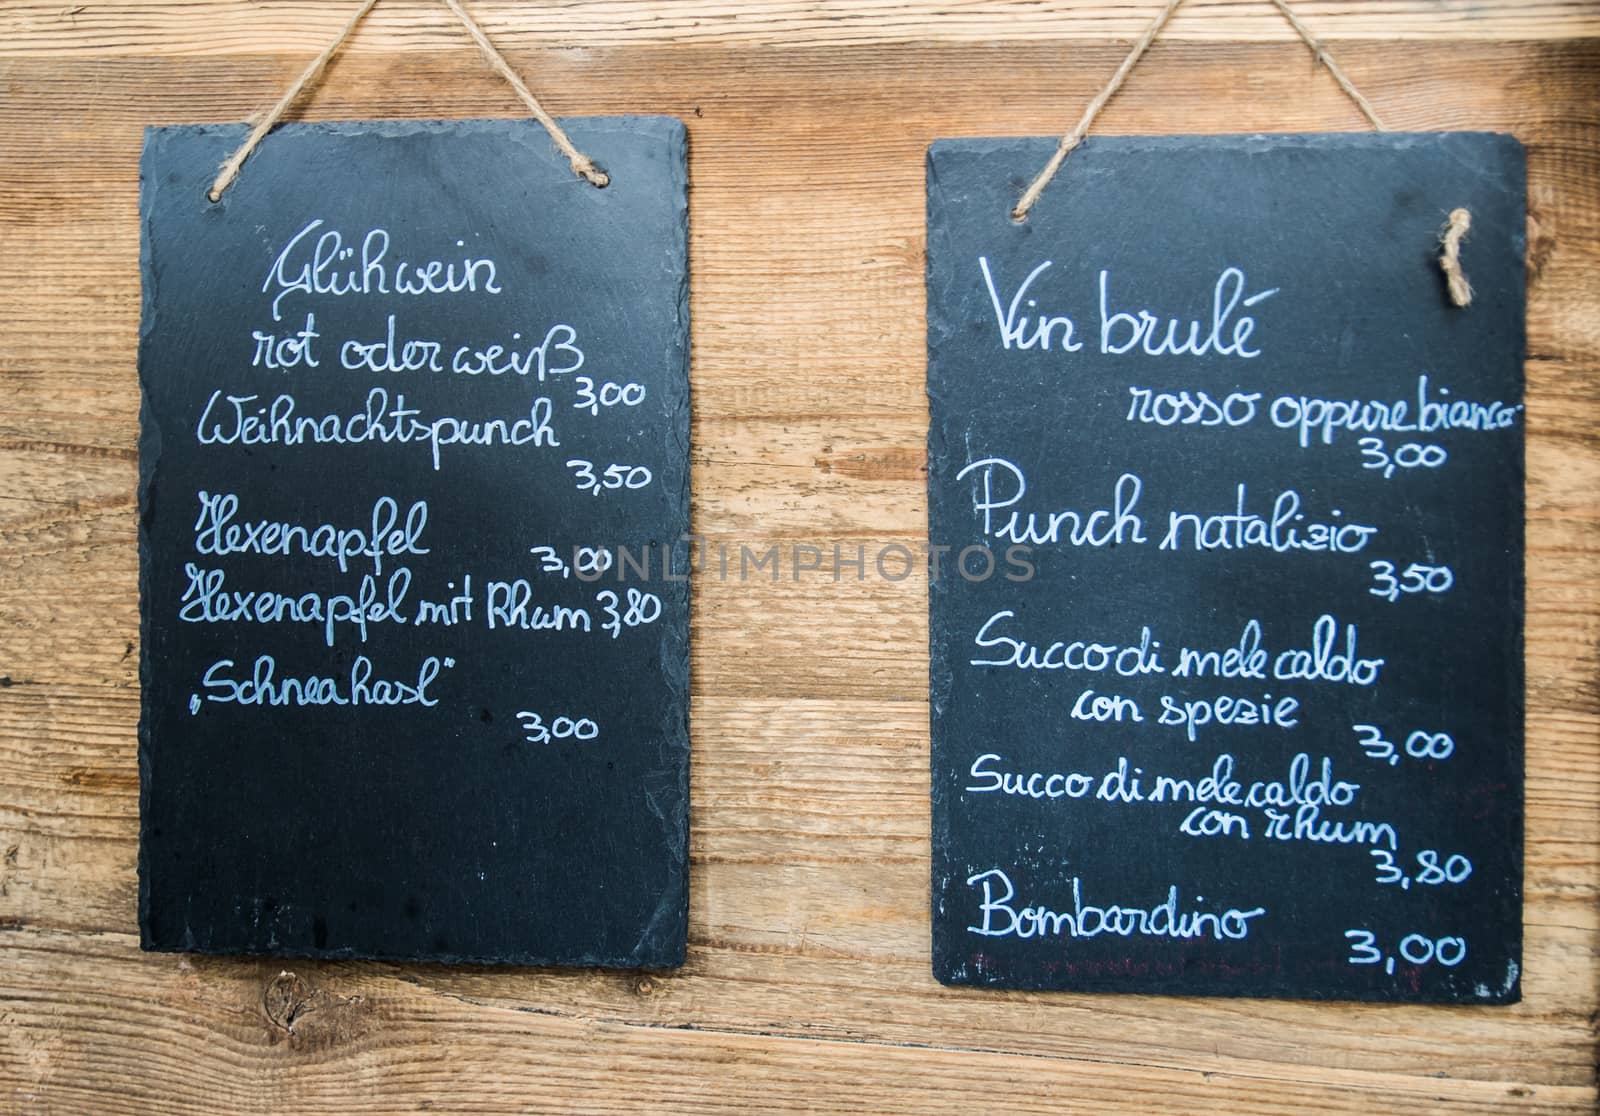 Glühwein
rot oder weiß
3,00
Weihnachtspunch
3,50
Hexenapfel
3,00
Hexenapfel mit Rhum 3,80
„Schneahasl“
3,00
Vin brulé
rosso oppure bianco
3,00
Punch natalizio
3,50
Succo di mele caldo
con spezie
3,00
Succo di mele caldo
con rhum
3,80
Bombardino
3,00
UNLIMPHOTOS